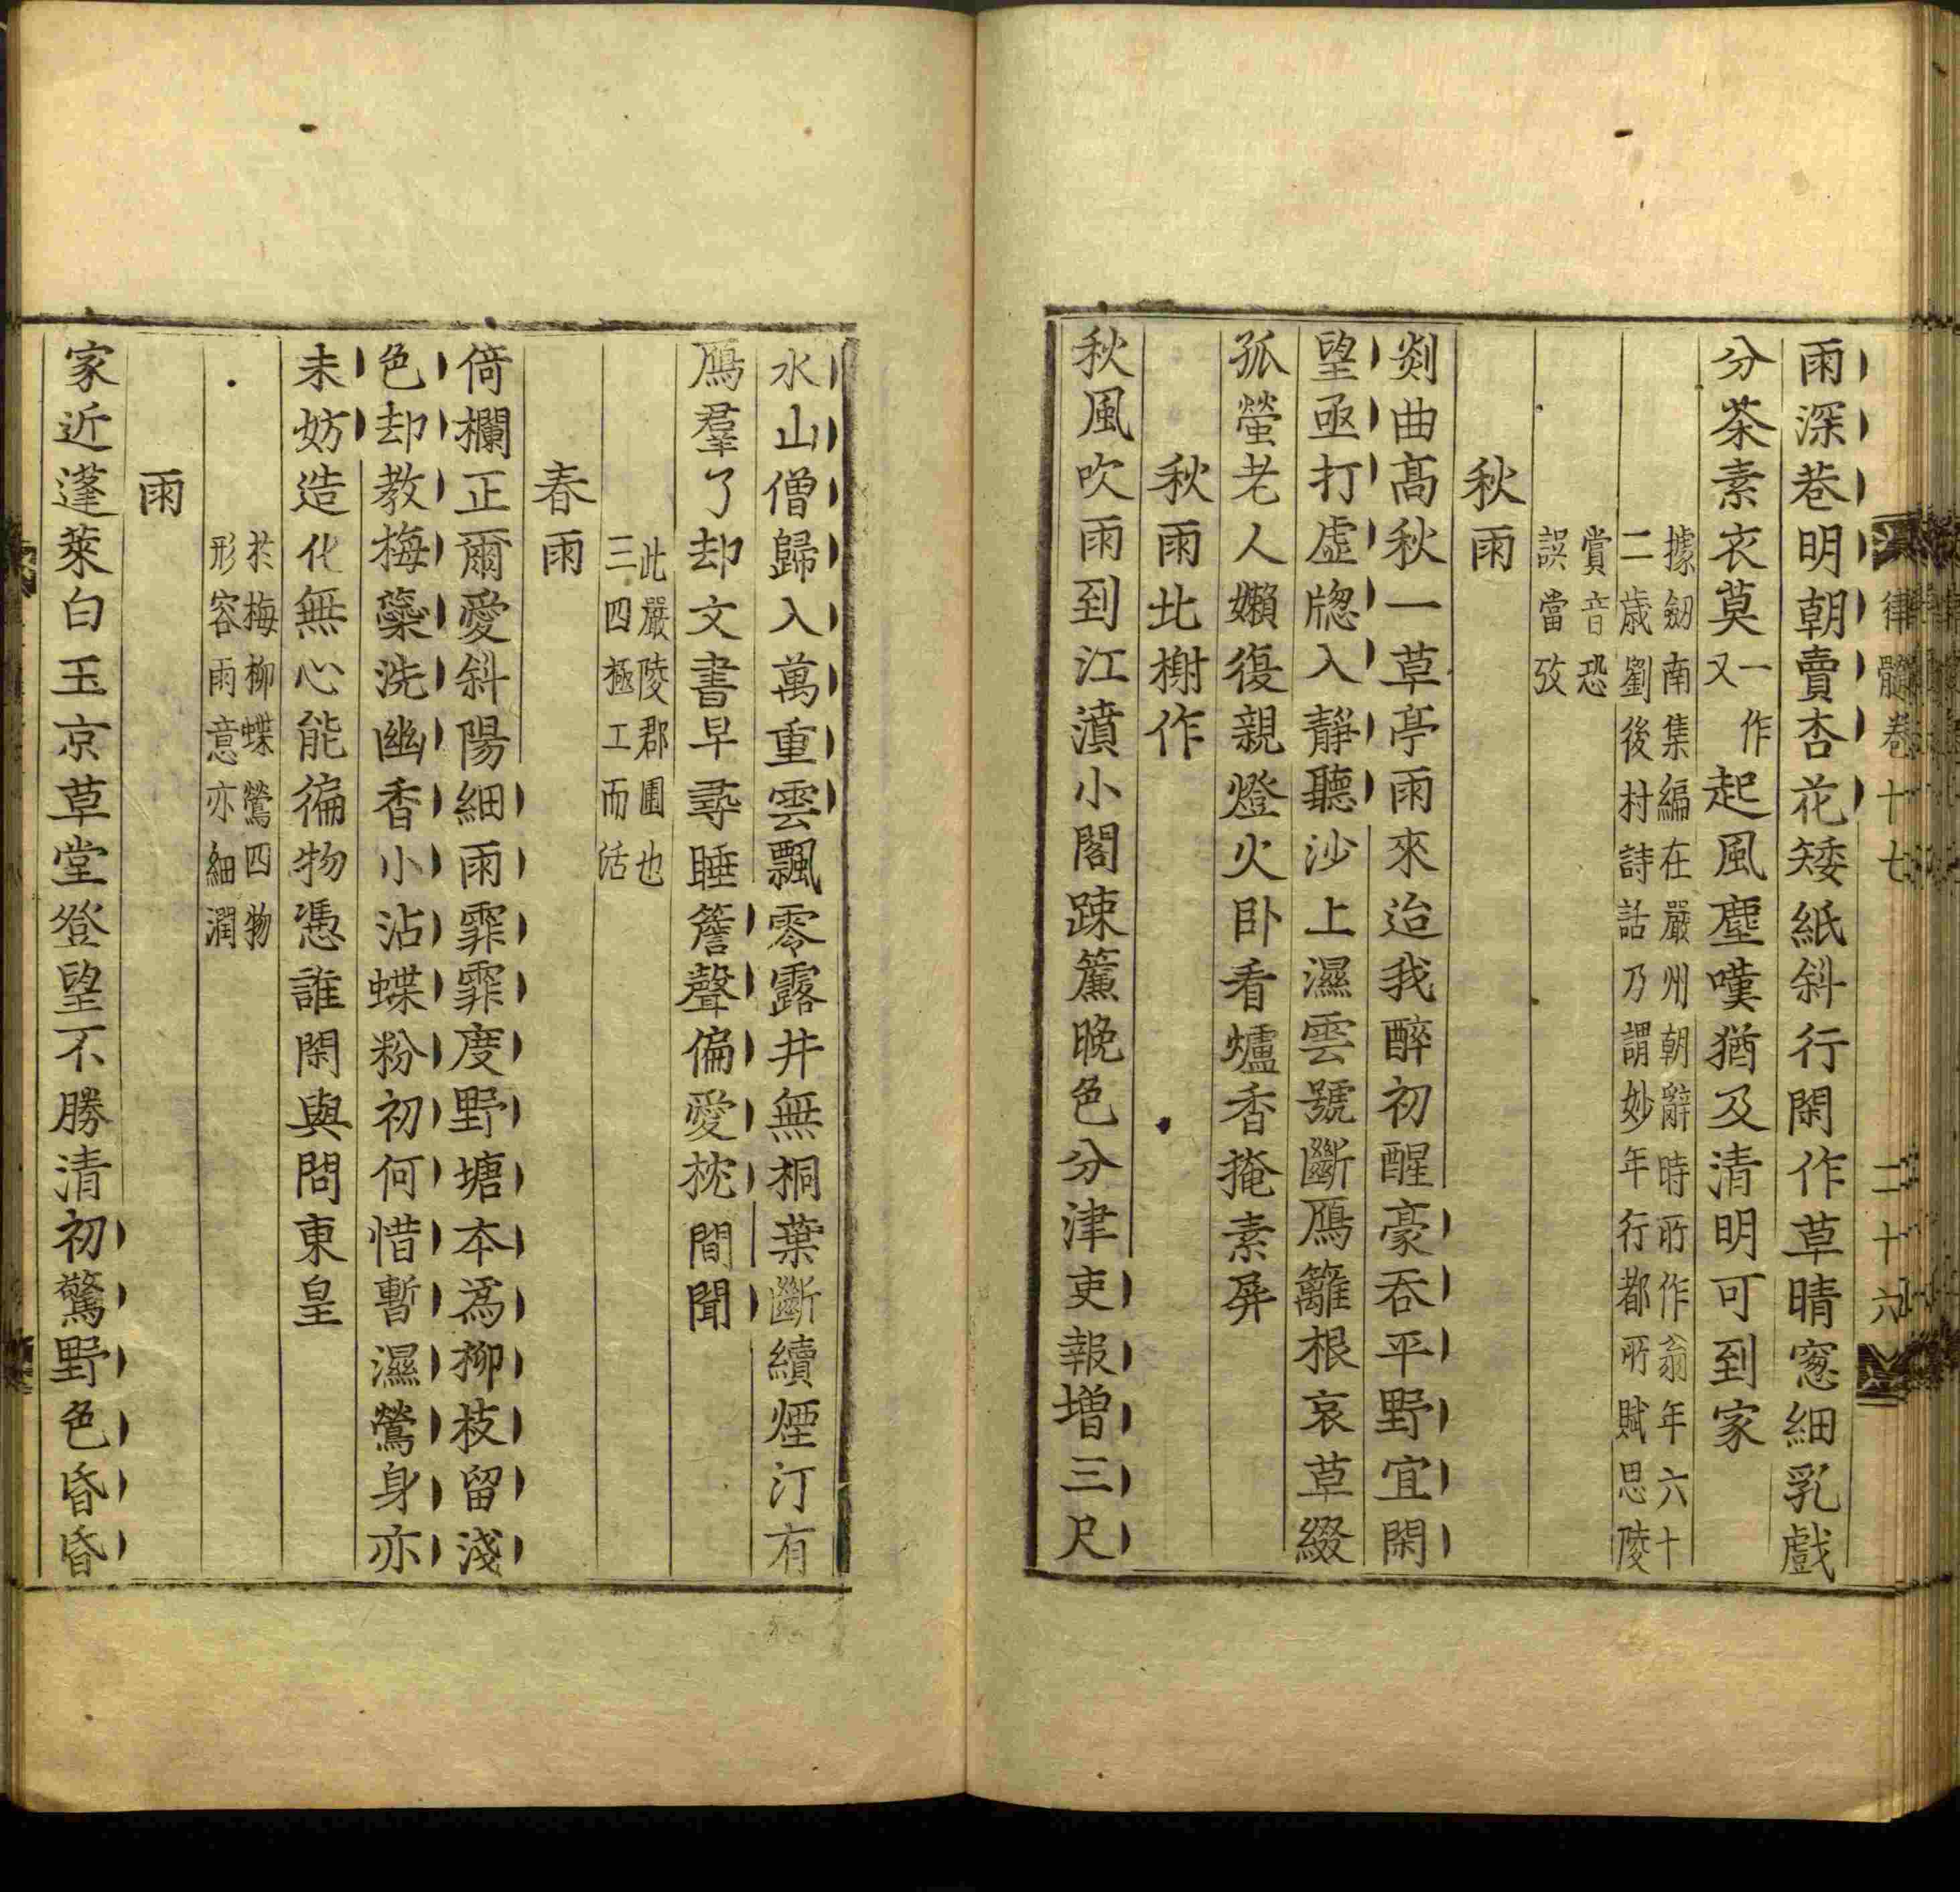 律髓卷十七 二十六
雨深巷明朝賣杏花矮紙斜行閑作草晴窓細乳戲
分茶素衣莫一作又起風塵嘆猶及清明可到家
據劒南集編在嚴州朝辭時所作翁年六十
二歲劉後村詩話乃謂妙年行都所賦思陵
賞音恐
誤當攷
秋雨
剡曲髙秋一草亭雨來迨我醉初醒豪吞平野宜閑
望亟打虛牕入靜聽沙上濕雲號斷鴈籬根哀草綴
孤螢老人嬾復親燈火卧看爐香掩素屏
秋雨北榭作
秋風吹雨到江濆小閣踈簾晚色分津吏報增三尺
水山僧歸入萬重雲飄零露井無桐葉斷續煙汀有
鴈羣了却文書早尋睡簷聲偏愛枕間聞
此嚴陵郡圃也
三四極工而活
春雨
倚欄正爾愛斜陽細雨霏霏度野塘本爲柳枝留淺
色却教梅蘂洗幽香小沾蝶粉初何惜暫濕鶯身亦
未妨造化無心能徧物憑誰閑與問東皇
於梅柳蝶鶯四物
形容雨意亦細潤
雨
家近蓬萊白玉京草堂登望不勝清初驚野色昏昏